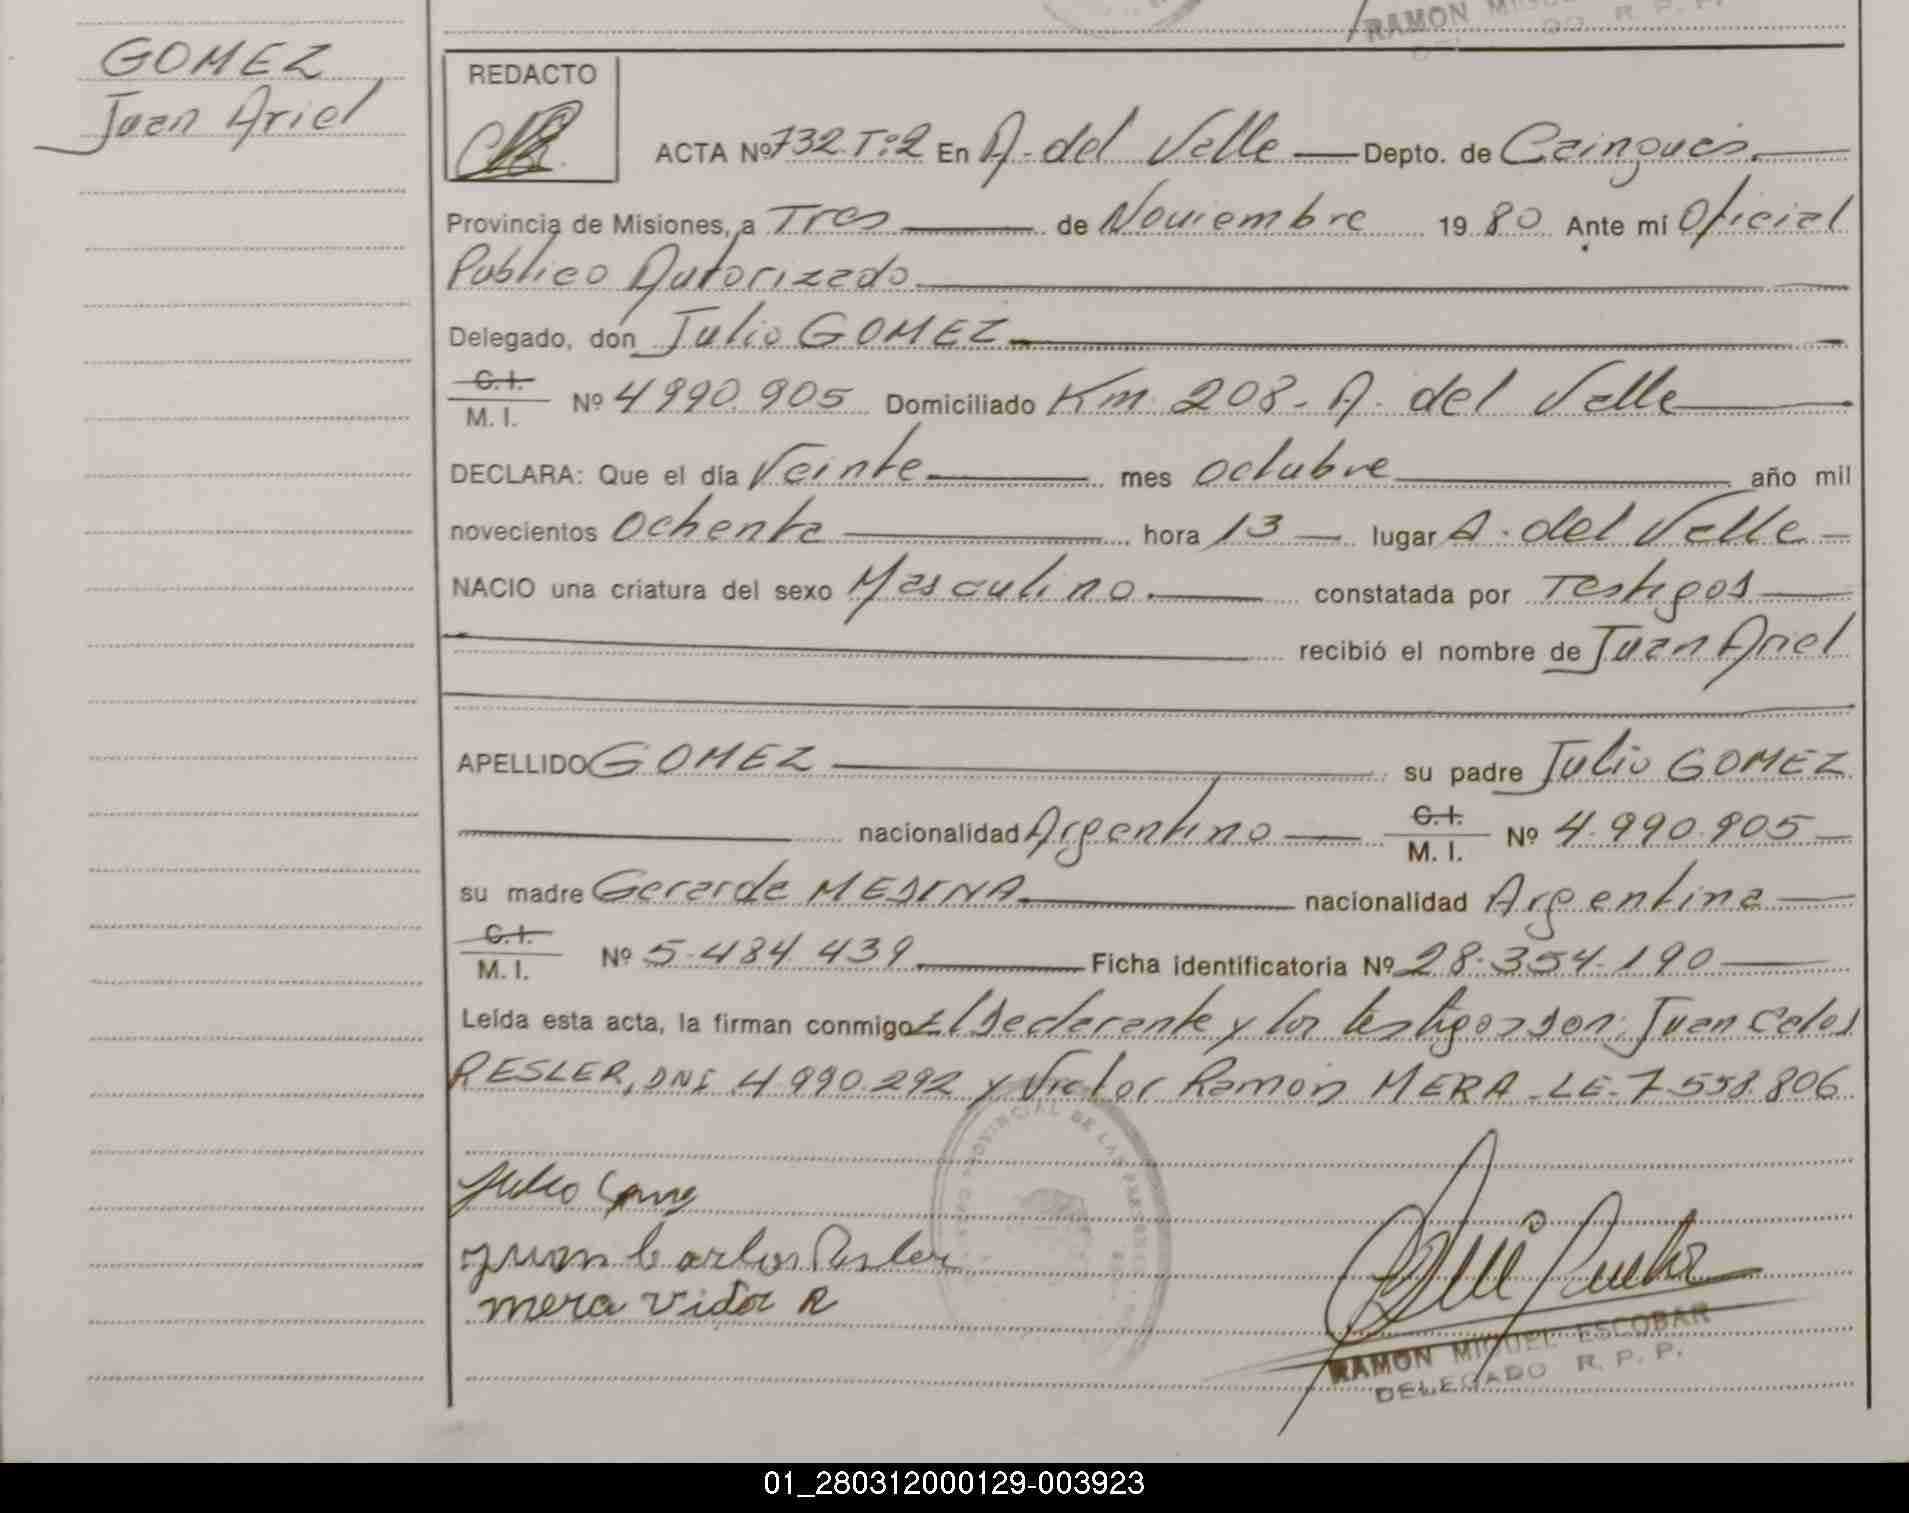 GOMEZ
Juan Ariel
RAMON
R. P. P.
REDACTO
ACTA Nº 732 Tº:2 En A. del Valle Depto. de Cainguás
Provincia de Misiones, a Tres de Noviembre 1980 Ante mí Oficial
Publico Autorizado
Delegado, don Julio GOMEZ
C.I.
M. I. Nº 4990.905 Domiciliado Km 208 - A. del Valle
DECLARA: Que el día Veinte mes octubre año mil
novecientos Ochenta hora 13 lugar A. del Valle
NACIO una criatura del sexo Masculino. constatada por Testigos
recibió el nombre de Juan Ariel
APELLIDO GOMEZ su padre Julio GOMEZ
nacionalidad Argentino C.I. M. I. Nº 4.990.905
su madre Gerarda MEDINA nacionalidad Argentina
C.I. M. I. Nº 5.484.439 Ficha identificatoria Nº 28.354.190
Leída esta acta, la firman conmigo El declarante y los testigos son: Juan Calos
RESLER, DNI 4.990.292 y Victor Ramón MERA - LE - 7.558.806
Julio
Juan Carlos Resler
mera Vidor R
PROVINCIAL DE LAS
RAMON MIGUEL ESCOBAR
DELEGADO R. P. P.
01_280312000129-003923